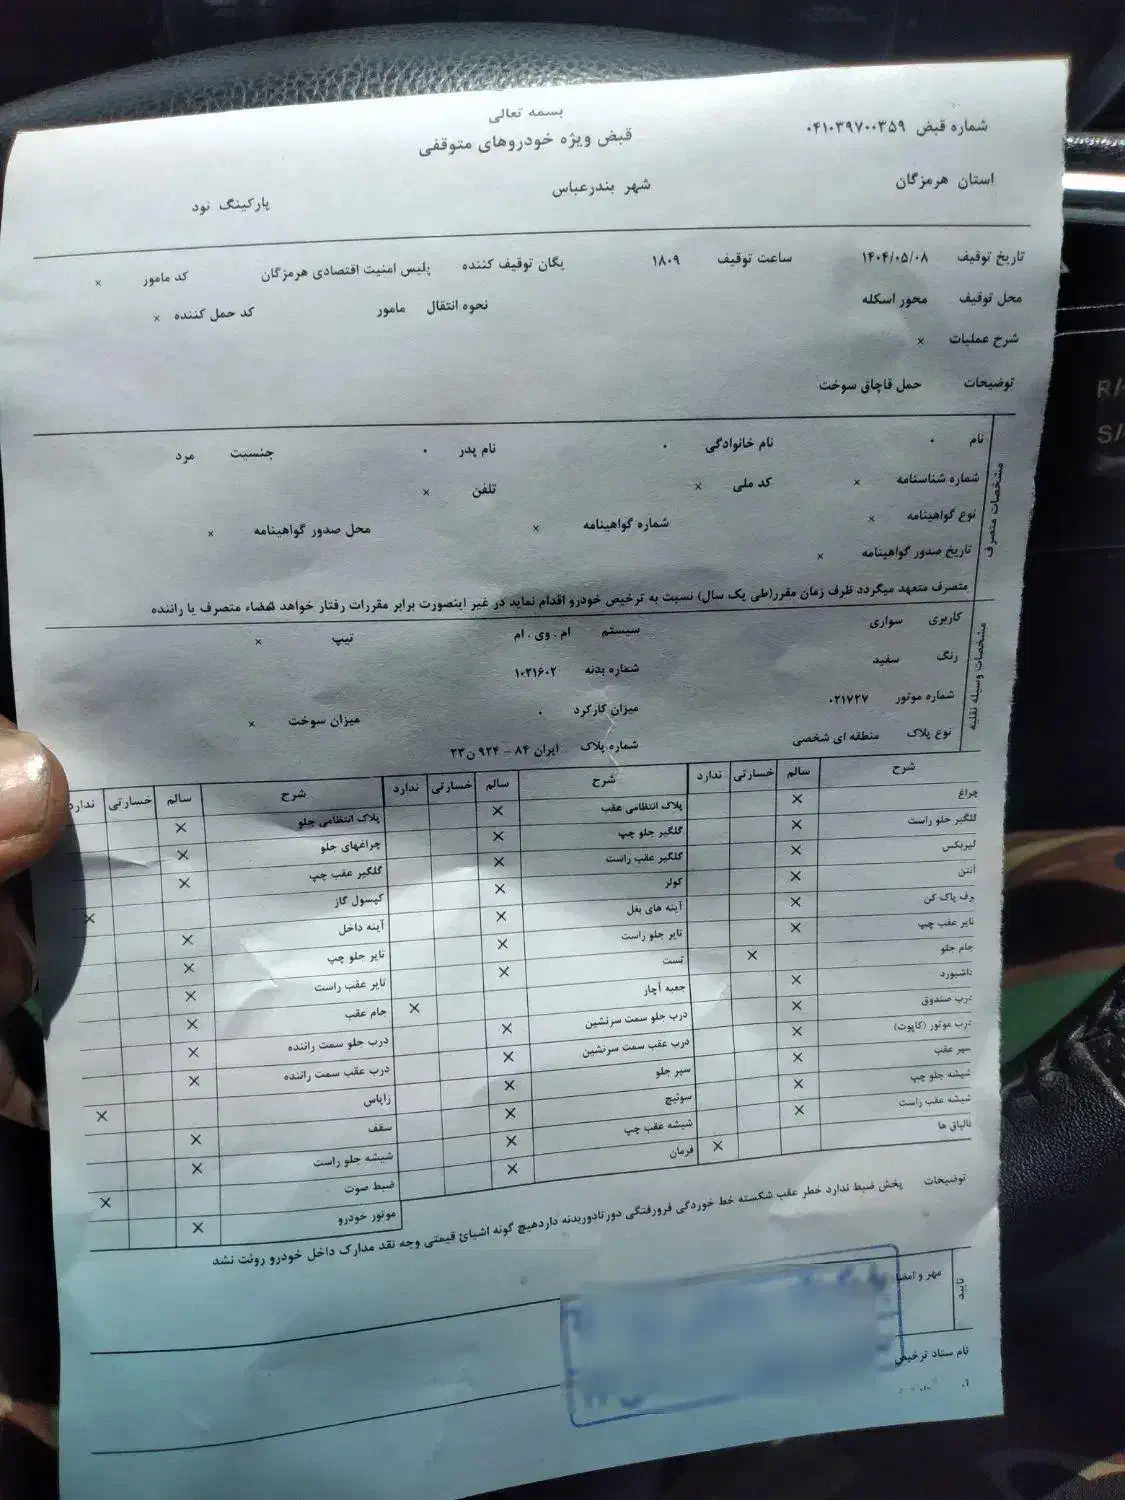 بسمه تعالی
قبض ویژه خودروهای متوقفی
شماره قبض ۰۴۱۰۳۹۷۰۰۳۵۹
استان هرمزگان شهر بندرعباس پارکینگ نود
تاریخ توقیف ۱۴۰۴/۰۵/۰۸ ساعت توقیف ۱۸۰۹ یگان توقیف کننده پلیس امنیت اقتصادی هرمزگان کد مامور ×
محل توقیف محور اسکله نحوه انتقال مامور کد حمل کننده ×
شرح عملیات ×
توضیحات حمل قاچاق سوخت
مشخصات متصرف
نام ۰ نام خانوادگی ۰ نام پدر ۰ جنسیت مرد
شماره شناسنامه × کد ملی × تلفن ×
نوع گواهینامه × شماره گواهینامه × محل صدور گواهینامه ×
تاریخ صدور گواهینامه ×
متصرف متعهد میگردد ظرف زمان مقرر(طی یک سال) نسبت به ترخیص خودرو اقدام نماید در غیر اینصورت برابر مقررات رفتار خواهد امضاء متصرف یا راننده
مشخصات وسیله نقلیه
کاربری سواری سیستم ام . وی . ام تیپ ×
رنگ سفید شماره بدنه ۱۰۲۱۶۰۲
شماره موتور ۰۲۱۷۲۷ میزان کارکرد ۰ میزان سوخت ×
نوع پلاک منطقه ای شخصی شماره پلاک ایران ۸۴ - ۹۲۴ ن۲۳
شرح سالم خسارتی ندارد شرح سالم خسارتی ندارد شرح سالم خسارتی ندارد
چراغ × پلاک انتظامی عقب × پلاک انتظامی جلو ×
گلگیر جلو راست × گلگیر جلو چپ × چراغهای جلو ×
گیربکس × گلگیر عقب راست × گلگیر عقب چپ ×
آنتن × کولر × کپسول گاز ×
برف پاک کن × آینه های بغل × آینه داخل ×
تایر عقب چپ × تایر جلو راست × تایر جلو چپ ×
جام جلو × تست × تایر عقب راست ×
داشبورد × جعبه آچار × جام عقب ×
درب صندوق × درب جلو سمت سرنشین × درب جلو سمت راننده ×
درب موتور (کاپوت) × درب عقب سمت سرنشین × درب عقب سمت راننده ×
سپر عقب × سپر جلو × زاپاس ×
شیشه جلو چپ × سوئیچ × سقف ×
شیشه عقب راست × شیشه عقب چپ × شیشه جلو راست ×
قالپاق ها × فرمان × ضبط صوت ×
موتور خودرو ×
توضیحات پخش ضبط ندارد خطر عقب شکسته خط خوردگی فرورفتگی دورتادوربدنه داردهیچ گونه اشیائ قیمتی وجه نقد مدارک داخل خودرو روئت نشد
تایید
مهر و امضا
نام ستاد ترخیص